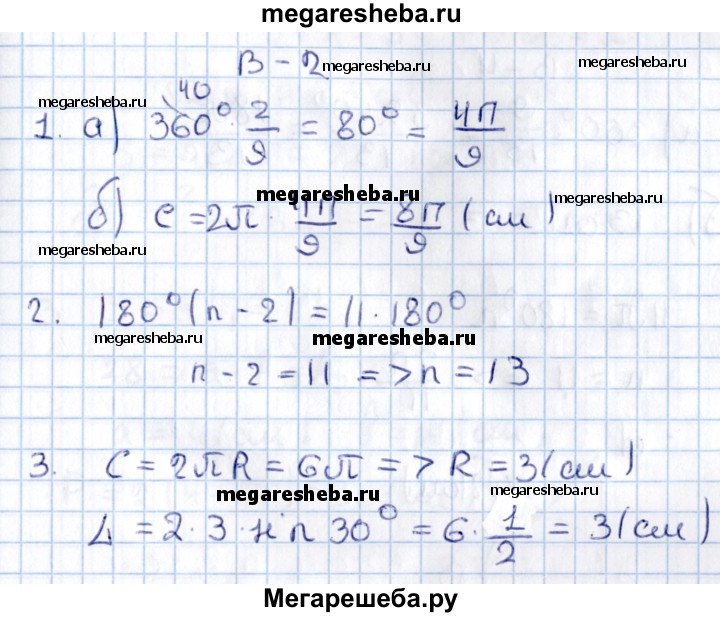 megaresheba.ru
В - 2 megaresheba.ru megaresheba.ru
megaresheba.ru 40 megaresheba.ru
1. а) 360° · 2/9 = 80° = 4П/9
megaresheba.ru megaresheba.ru
б) C = 2π · 4П/9 = 8П/9 (см)
megaresheba.ru
2. 180° (n - 2) = 11 · 180°
megaresheba.ru megaresheba.ru
n - 2 = 11 => n = 13
3. C = 2πR = 6π => R = 3 (см)
megaresheba.ru megaresheba.ru
= 2 · 3 · 30° = 6 · 1/2 = 3 (см)
Мегарешеба.ру